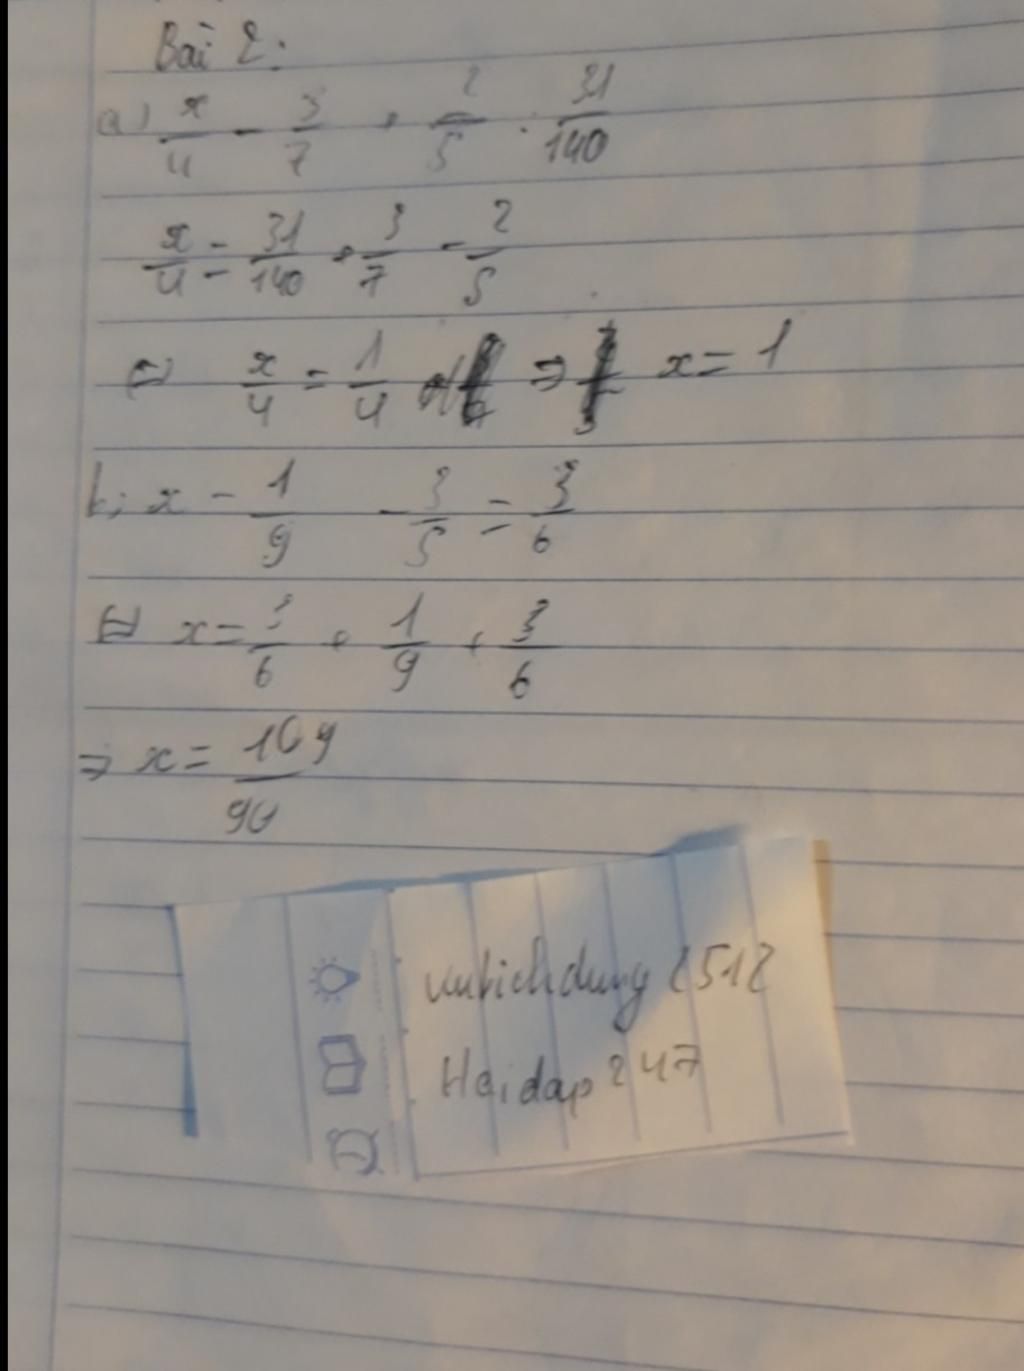 Bài 2:
a) x/4 - 3/7 + 2/5 = 31/140
x/4 = 31/140 + 3/7 - 2/5
⇔ x/4 = 1/4 ⇒ x = 1
b; x - 1/9 - 3/5 = 3/6
⇔ x = 3/6 + 1/9 + 3/6
⇒ x = 109/90
2512
Hoidap247